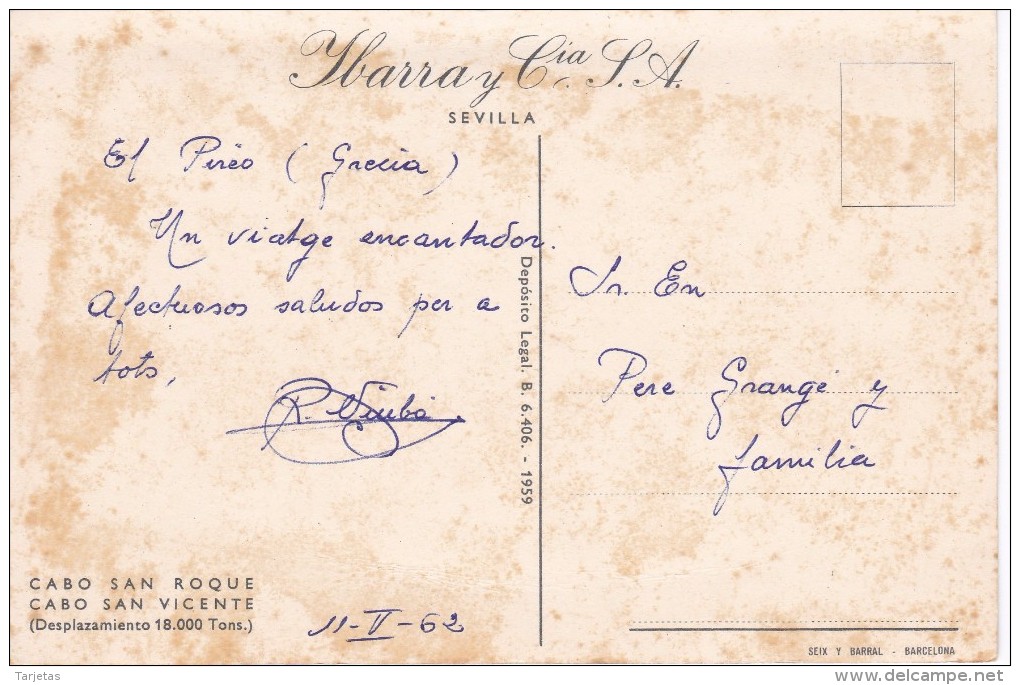 Ybarra y Cía. S.A.
SEVILLA
El Pireo (Grecia)
Un viatge encantador.
Afectuosos saludos per a
tots,
R.
CABO SAN ROQUE
CABO SAN VICENTE
(Desplazamiento 18.000 Tons.)
11-V-62
Depósito Legal. B. 6.406. - 1959
Sr. En
Pere Grangé y
familia
SEIX Y BARRAL - BARCELONA
Tarjetas
delcampe.net